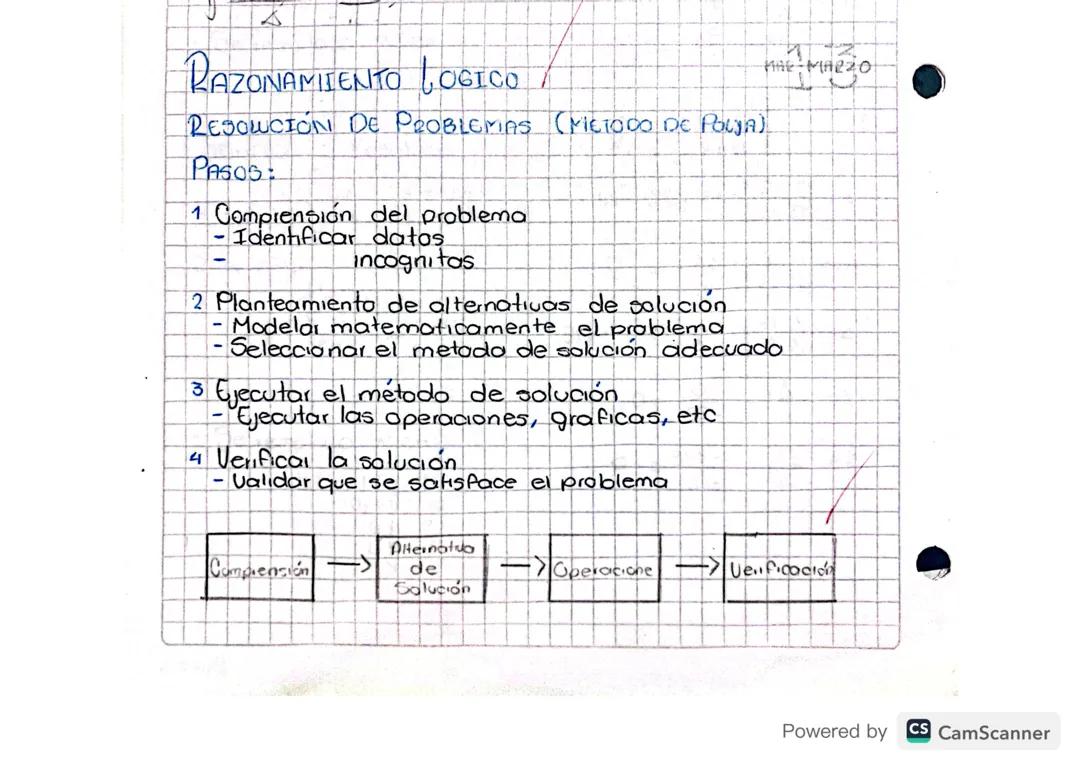 RAZONAMIENTO LOGICO
13
MAR-MARZO
RESOLUCIÓN DE PROBLEMAS (METODO DE POLYA)
PASOS:
1 Comprensión del problema
- Identificar datos
- incognitas
2 Planteamiento de alternativas de solución
- Modelar matematicamente el problema
- Seleccionar el metodo de solución adecuado
3 Ejecutar el método de solución
- Ejecutar las operaciones, graficas, etc
4 Verificar la solución
- Validar que se satisface el problema
Comprensión → Alternativa de Solución → Operacione → Verificación
Powered by CS CamScanner